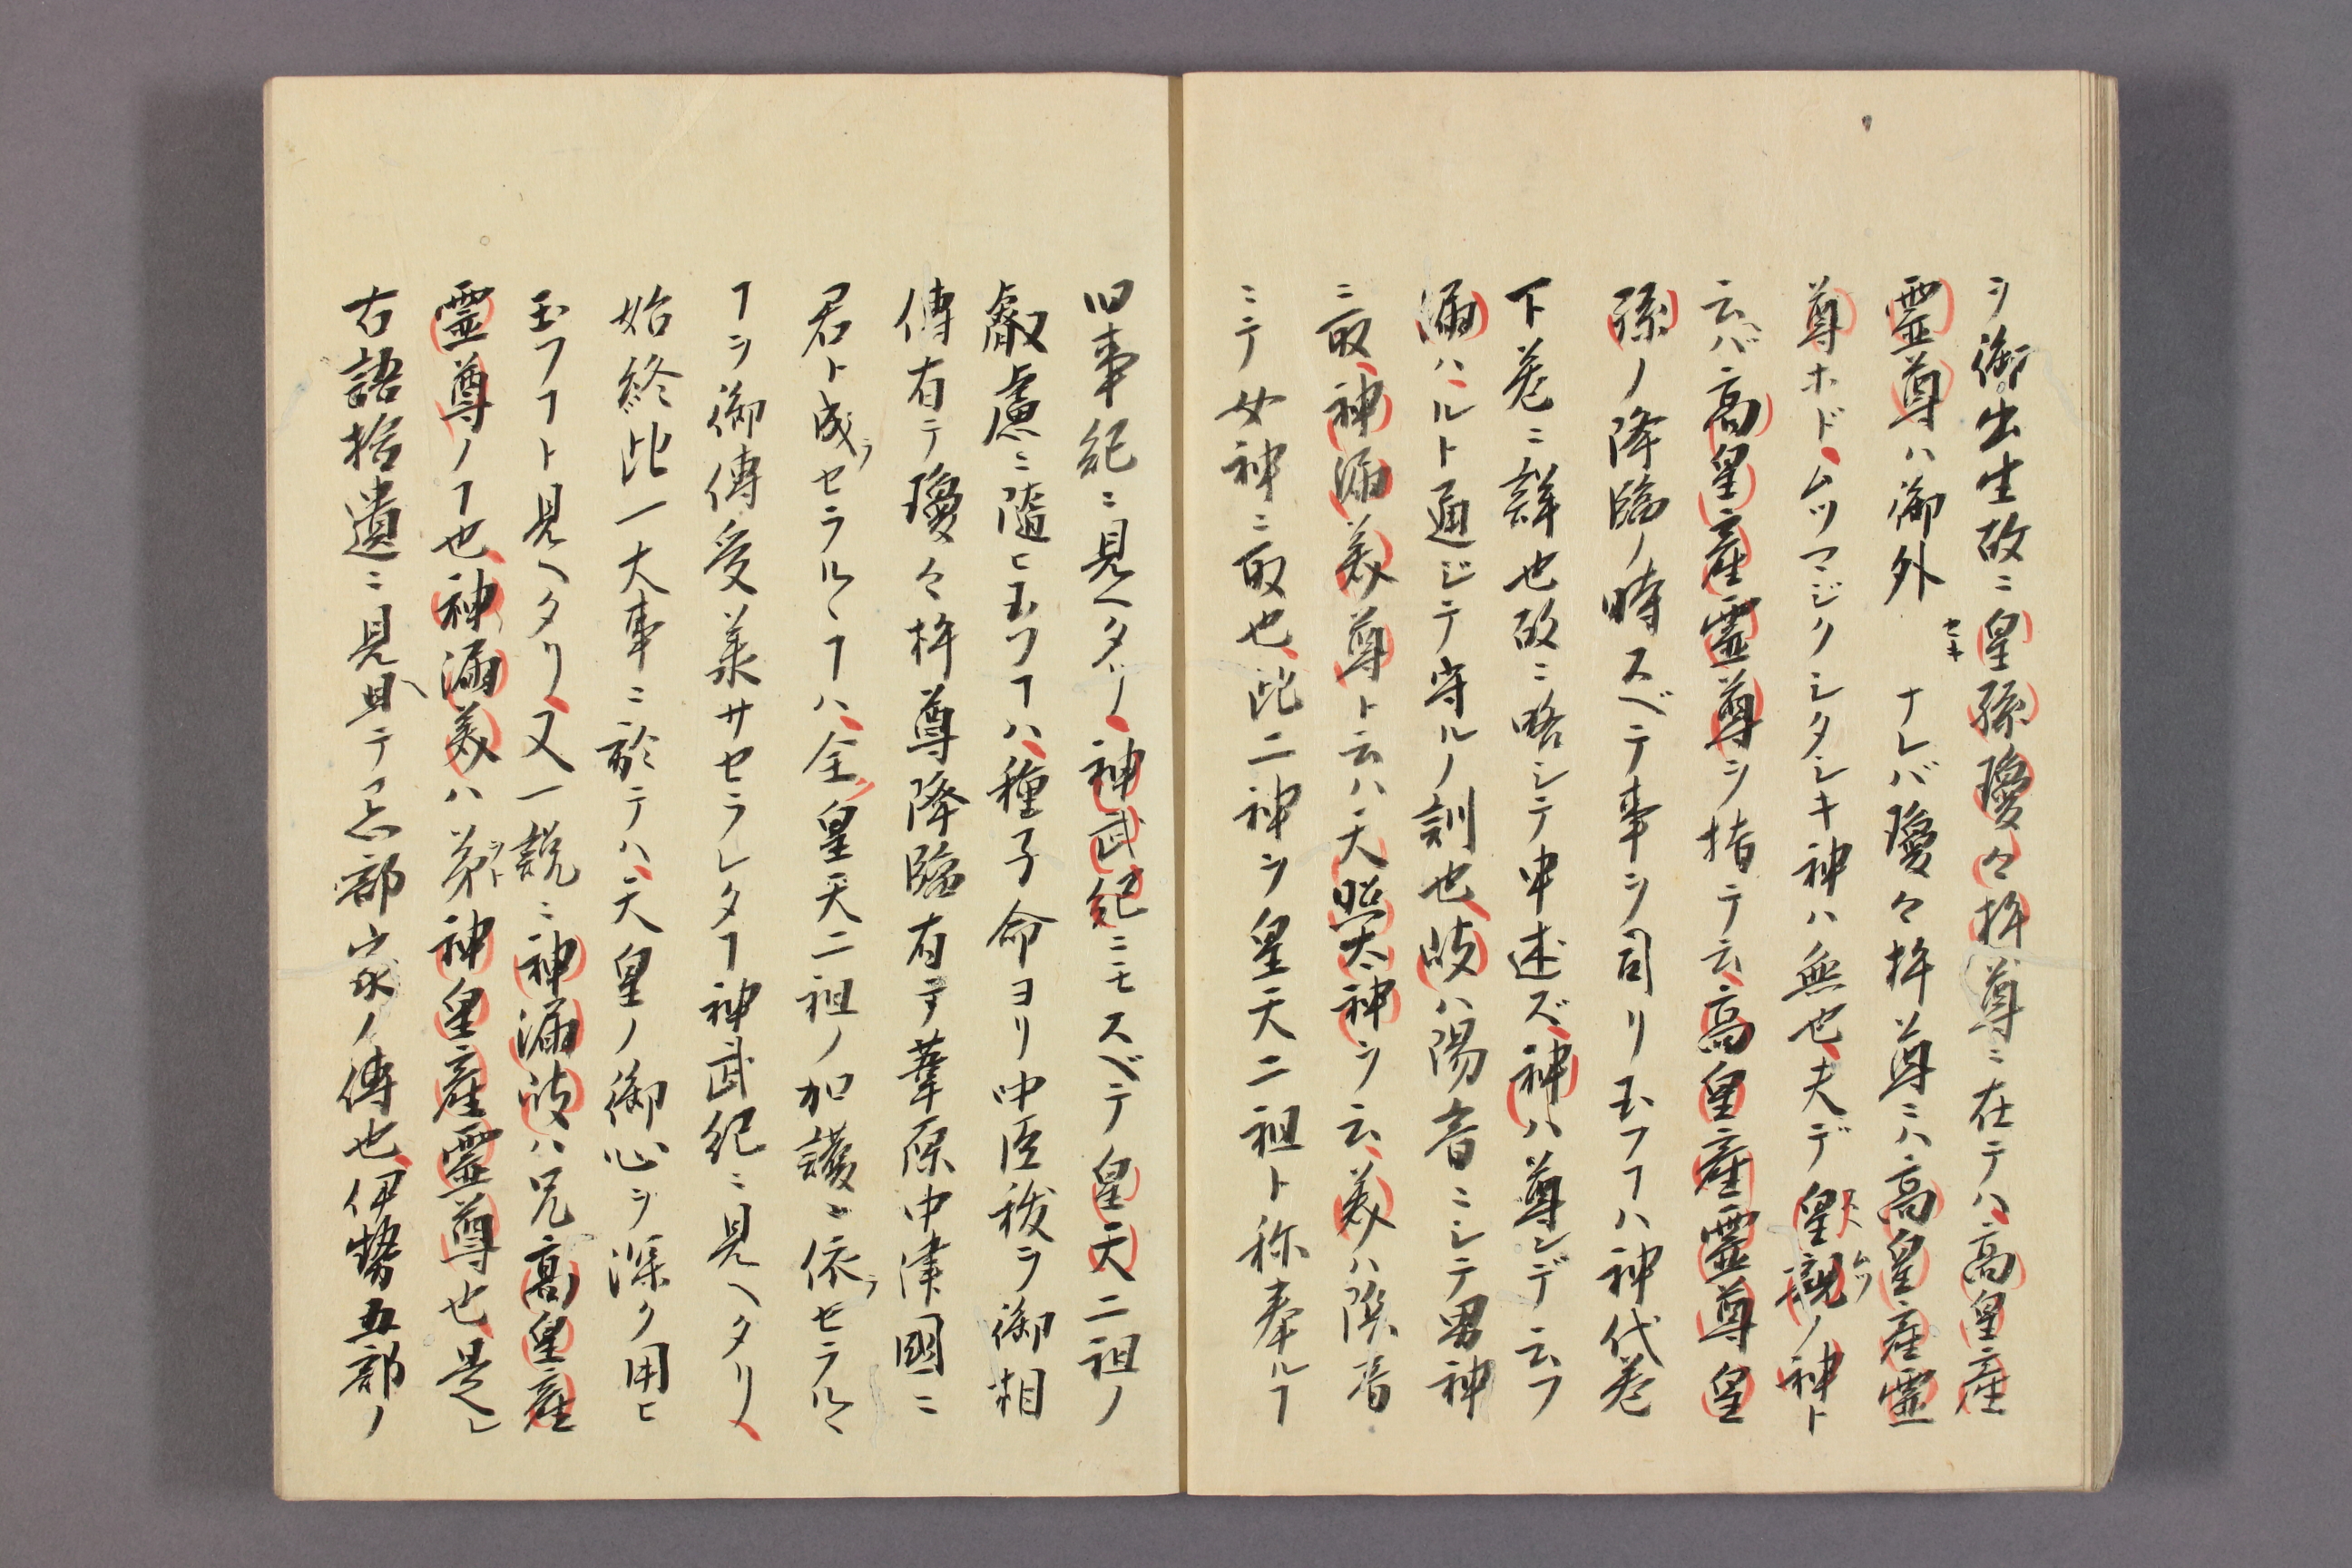 ヲ御出生故ニ皇孫瓊々杵尊ニ在テハ高皇産
霊尊ハ御外セキナレバ瓊々杵尊ニハ高皇産霊
尊ホドムツマジクシタシキ神ハ無也夫デ皇親ムツノ神ト
云バ高皇産霊尊ヲ指テ云高皇産霊尊皇
孫ノ降臨ノ時スベテ事ヲ司リ玉フヿハ神代巻
下巻ニ詳也故ニ略シテ申述ズ神ハ尊ンデ云フ
漏ハルト通ジテ守ルノ訓也岐ハ陽音ニシテ男神
ニ取神漏美尊ト云ハ天照太神ヲ云美ハ陰音
ニテ女神ニ取也此二神ヲ皇天二祖ト称奉ルヿ
旧事紀ニ見ヘタリ神武紀ニモスベテ皇天二祖ノ
叡慮ニ随ヒ玉フヿハ種子命ヨリ中臣祓ヲ御相
傳有テ瓊々杵尊降臨有テ葦原中津國ニ
君ト成ラセラルヽヿハ全皇天二祖ノ加護ニ依ラセラルヽ
ヿヲ御傳受業サセラレタヿ神武紀ニ見ヘタリ
始終此一大事ニ於テハ天皇ノ御心ヲ深ク用ヒ
玉フヿト見ヘタリ又一説ニ神漏岐ハ兄高皇産
霊尊ノヿ也神漏美ハ弟神皇産霊尊也是レ
古語拾遺ニ見ヘテ忌部家ノ傳也伊勢五部ノ